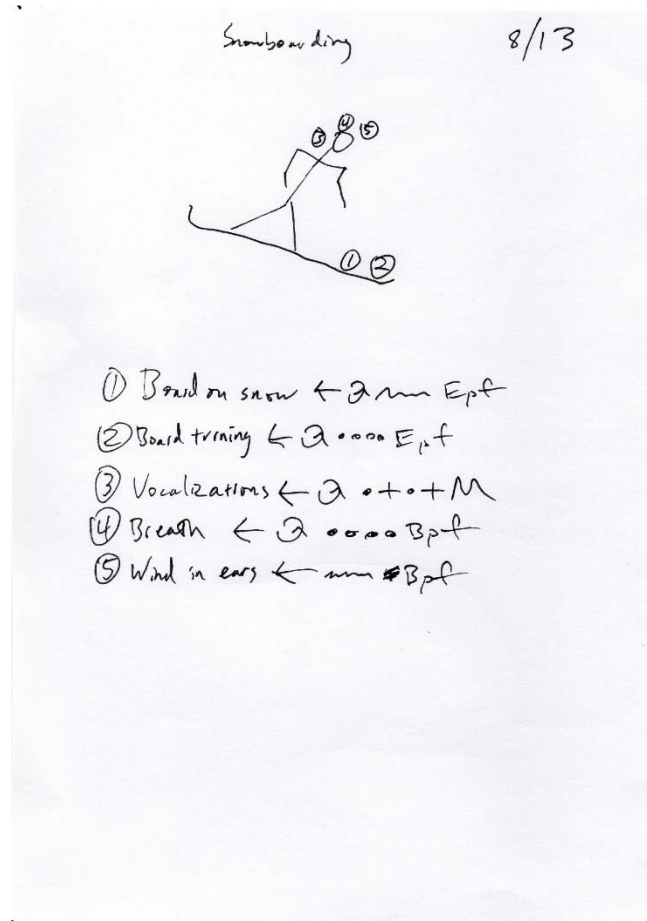 Snowboarding 8/13
③ ④ ⑤
① ②
① Board on snow ← Epf
② Board turning ← Epf
③ Vocalizations ← M
④ Breath ← Bpf
⑤ Wind in ears ← Bpf